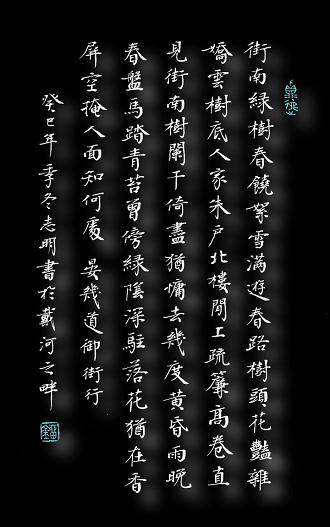 街南綠樹春饒絮雪滿遊春路樹頭花豔雜
嬌雲樹底人家朱戶北樓閒上疏簾高卷直
見街南樹闌干倚盡猶慵去幾度黃昏雨晚
春盤馬踏青苔曾傍綠陰深駐落花猶在香
屏空掩人面知何處 晏幾道御街行
癸巳年季冬志明書於戴河之畔